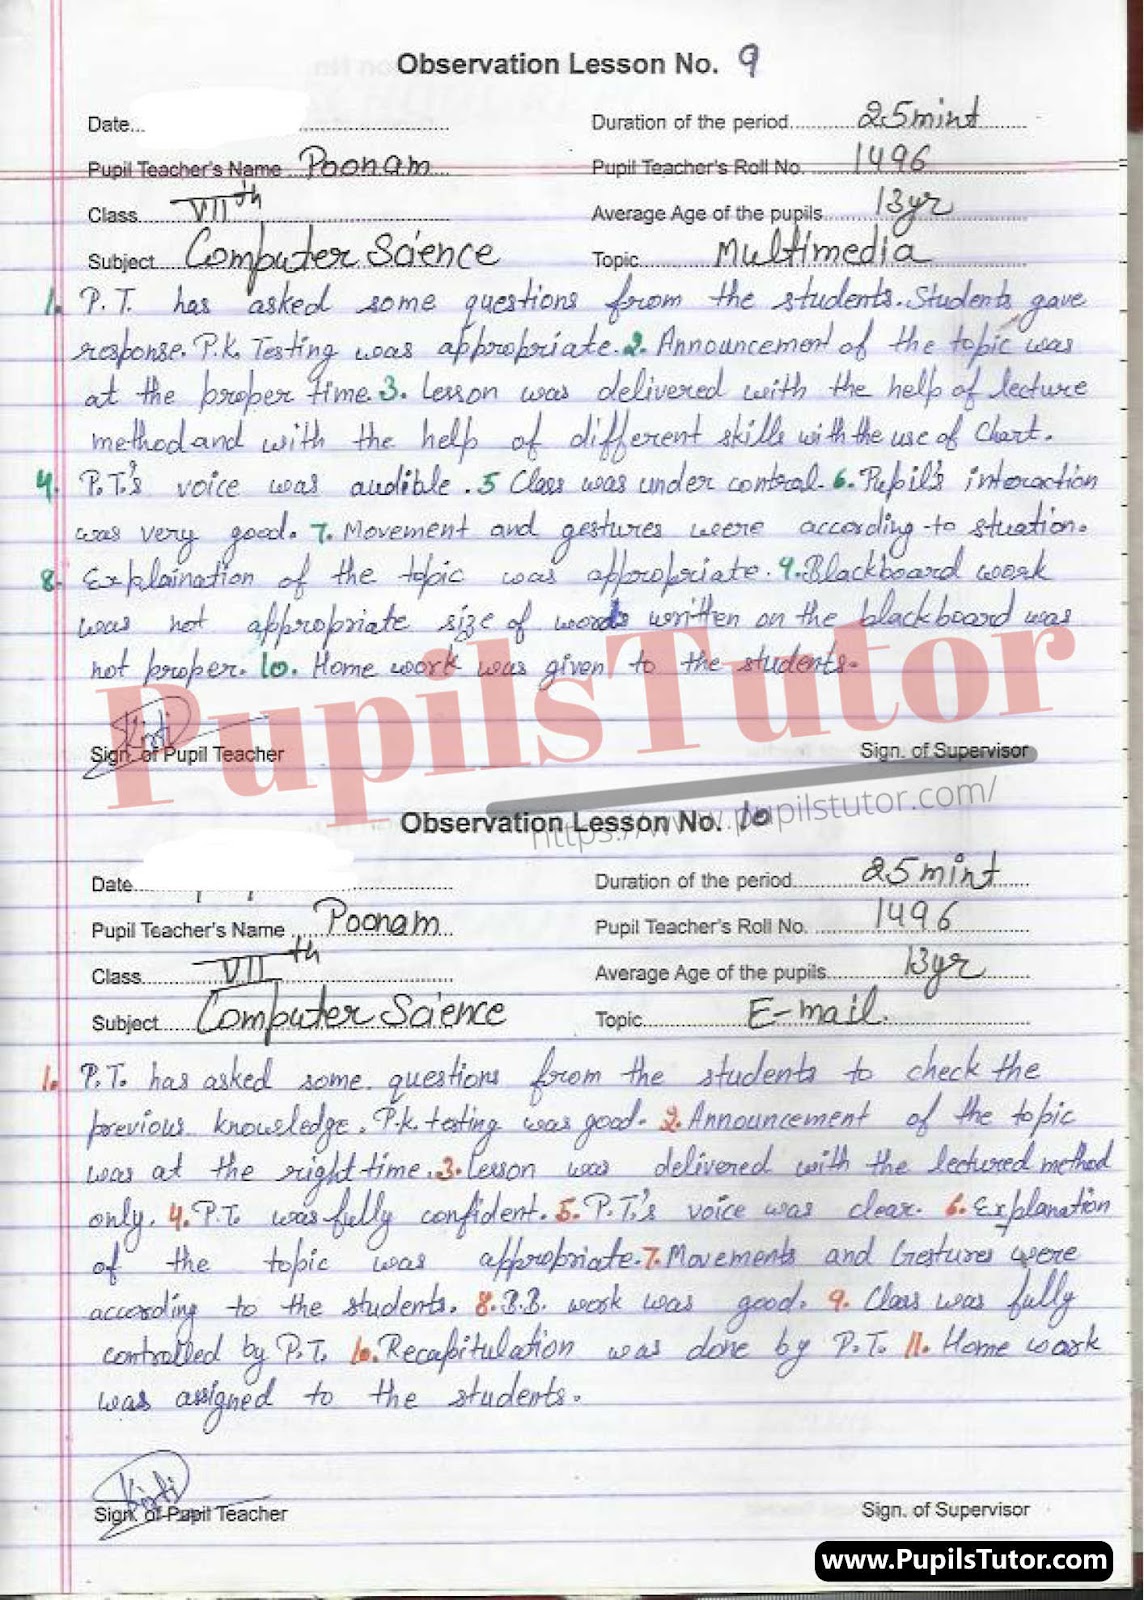 Observation Lesson No. 9
Date... Duration of the period 25mint
Pupil Teacher's Name Poonam Pupil Teacher's Roll No. 1496
Class VIIth Average Age of the pupils 13yr
Subject Computer Science Topic Multimedia
1. P.T. has asked some questions from the students. Students gave
response. P.K. Testing was appropriate. 2. Announcement of the topic was
at the proper time. 3. Lesson was delivered with the help of lecture
method and with the help of different skills with the use of Chart.
4. P.T.'s voice was audible. 5 Class was under control. 6. Pupil's interaction
was very good. 7. Movement and gestures were according to stuation.
8. Explaination of the topic was appropriate. 9. Blackboard work
was not appropriate size of words written on the blackboard was
not proper. 10. Home work was given to the students.
PupilsTutor
Kirti
Sign. of Pupil Teacher Sign. of Supervisor
https://www.pupilstutor.com/
Observation Lesson No. 10
Date Duration of the period 25mint
Pupil Teacher's Name Poonam Pupil Teacher's Roll No. 1496
Class VIIth Average Age of the pupils 13yr
Subject Computer Science Topic E-mail.
1. P.T. has asked some questions from the students to check the
previous knowledge. P.k. testing was good. 2. Announcement of the topic
was at the right time. 3. Lesson was delivered with the lectured method
only. 4. P.T. was fully confident. 5. P.T.'s voice was clear. 6. Explanation
of the topic was appropriate. 7. Movements and Gestures were
according to the students. 8. B.B. work was good. 9. Class was fully
controlled by P.T. 10. Recapitulation was done by P.T. 11. Home work
was assigned to the students.
Kirti
Sign. of Pupil Teacher Sign. of Supervisor
www.PupilsTutor.com